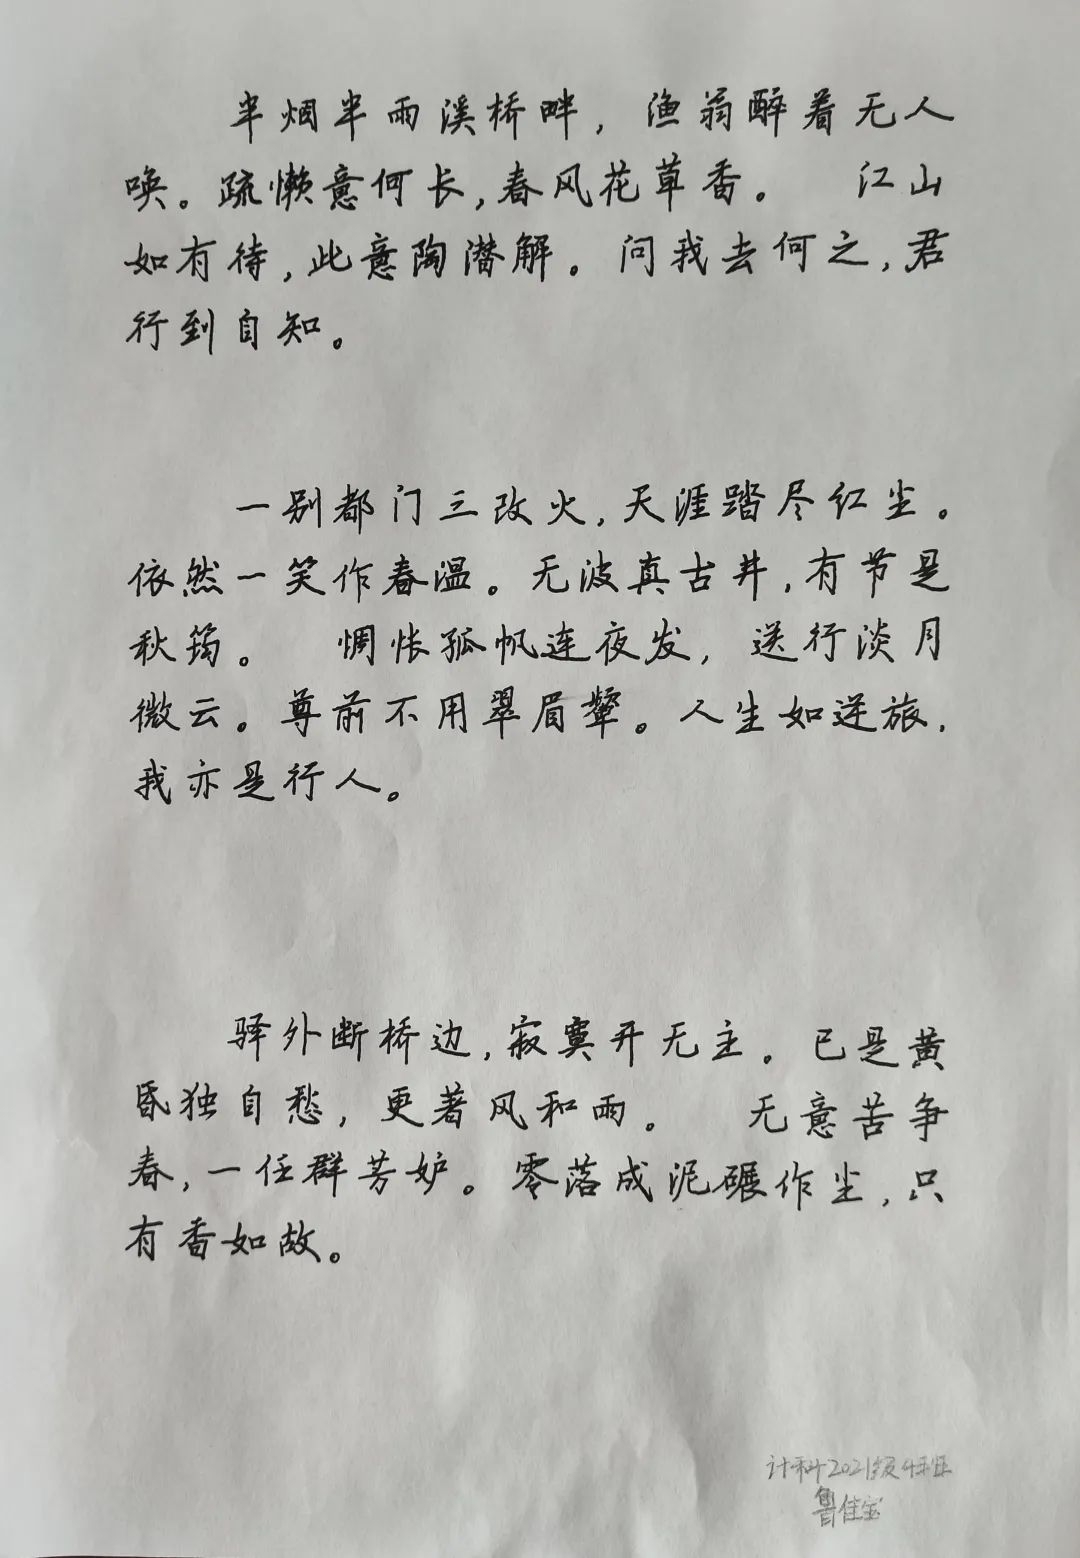 半烟半雨溪桥畔，渔翁醉着无人
唤。疏懒意何长，春风花草香。 江山
如有待，此意陶潜解。问我去何之，君
行到自知。
一别都门三改火，天涯踏尽红尘。
依然一笑作春温。无波真古井，有节是
秋筠。 惆怅孤帆连夜发，送行淡月
微云。尊前不用翠眉颦。人生如逆旅，
我亦是行人。
驿外断桥边，寂寞开无主。已是黄
昏独自愁，更著风和雨。 无意苦争
春，一任群芳妒。零落成泥碾作尘，只
有香如故。
计科2021级4班
鲁佳宝